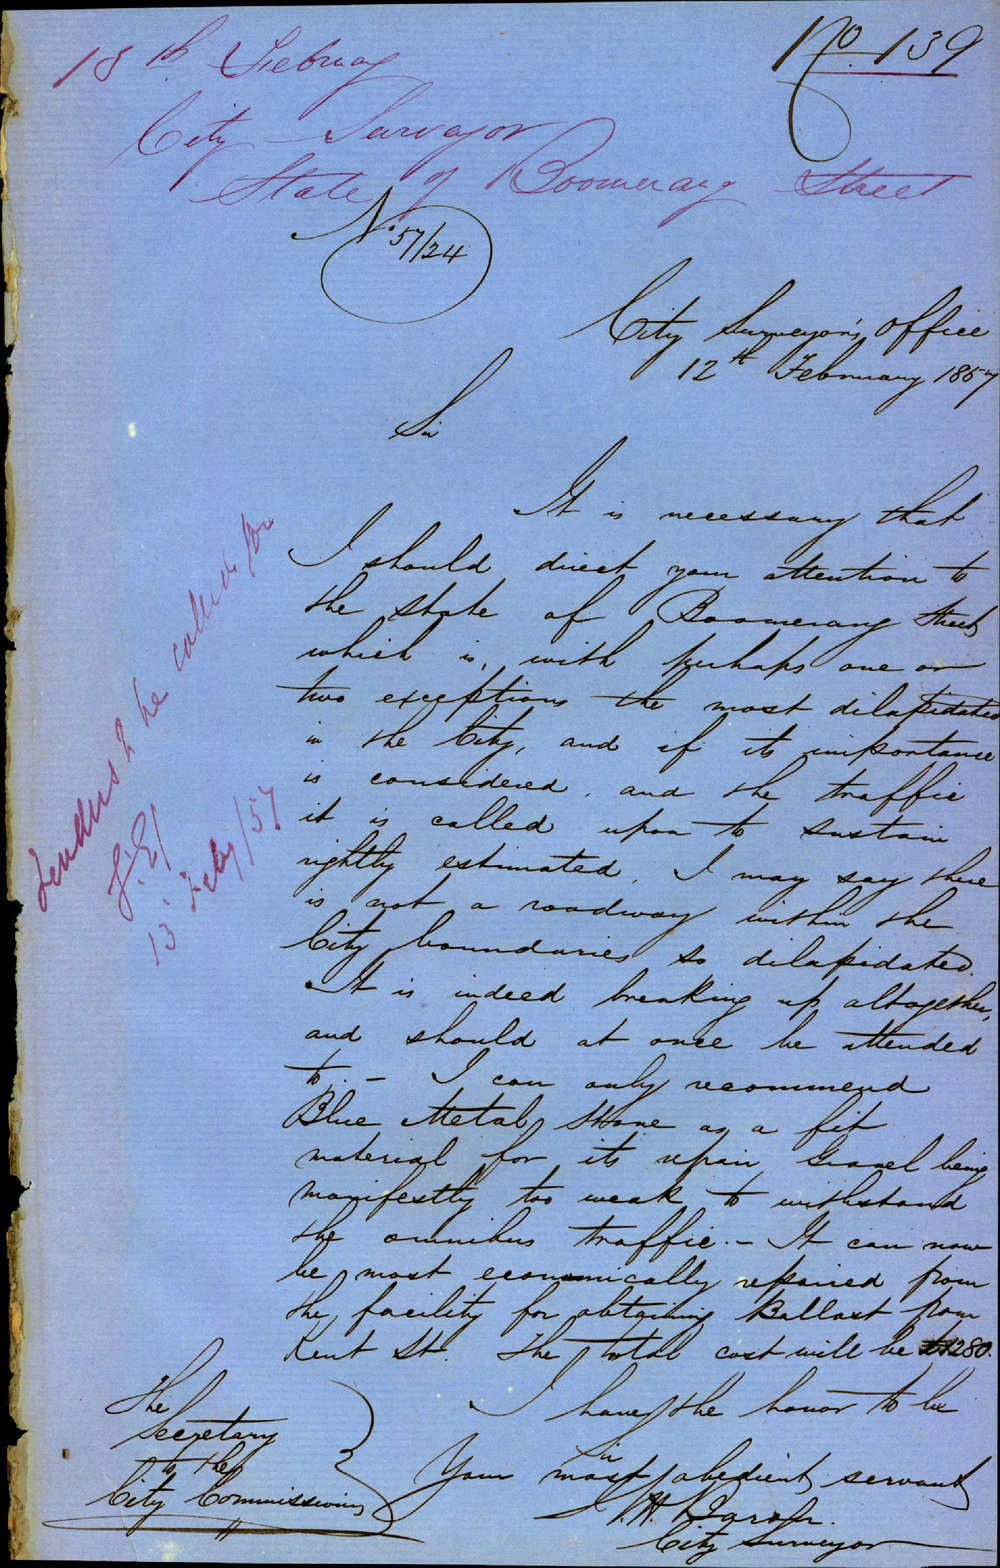 No. 139
13th February
City Surveyor
State of Boomerang Street
No. 57/24
City Surveyor's Office
12th February 1857
Sir
It is necessary that
I should direct your attention to
the state of Boomerang Street
which is, with perhaps one or
two exceptions the most dilapidated
in the City, and if its importance
is considered, and the traffic
it is called upon to sustain
rightly estimated, I may say there
is not a roadway within the
City boundaries so dilapidated.
It is indeed breaking up altogether,
and should at once be attended
to. – I can only recommend
Blue Metal Stone as a fit
material for its repair, Gravel being
manifestly too weak to withstand
the omnibus traffic. – It can now
be most economically repaired from
the facility for obtaining Ballast from
Kent St. The total cost will be 1280.
I have the honor to be
Sir
Your most obedient servant
City Surveyor
The
Secretary
to the
City Commissioners
Tenders to be called for
13 Feby/57